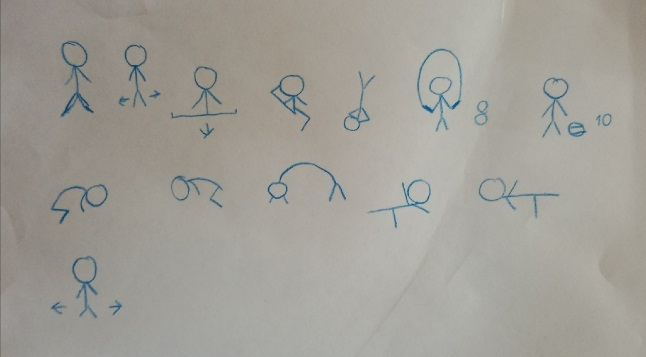 8 10